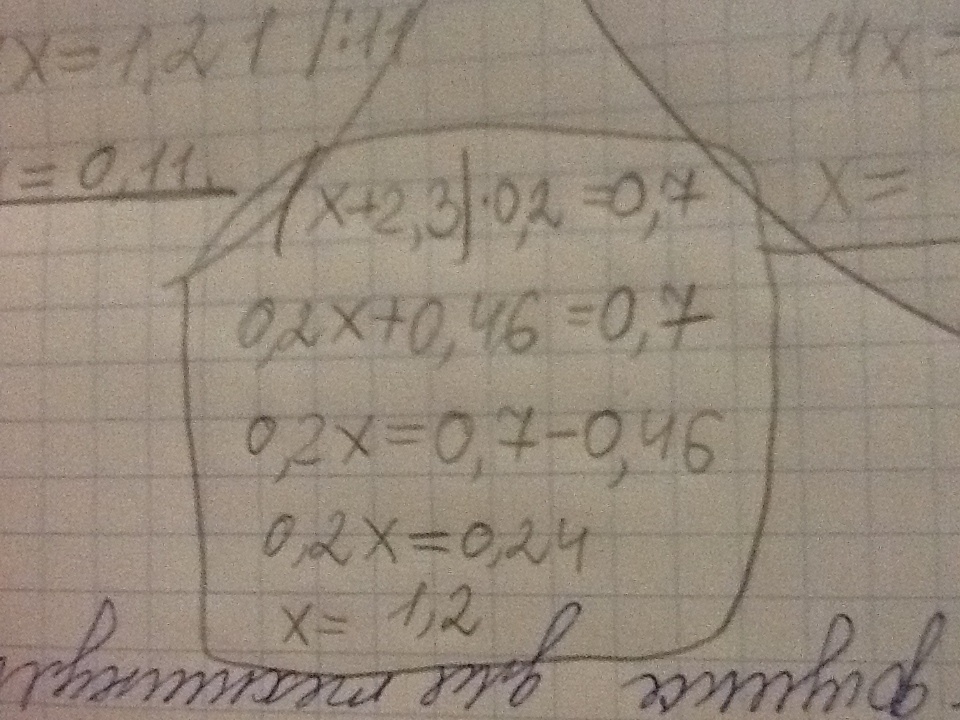 x=1,21 |:11
14x=
=0,11.
x=
(x+2,3)·0,2=0,7
0,2x+0,46=0,7
0,2x=0,7-0,46
0,2x=0,24
x= 1,2